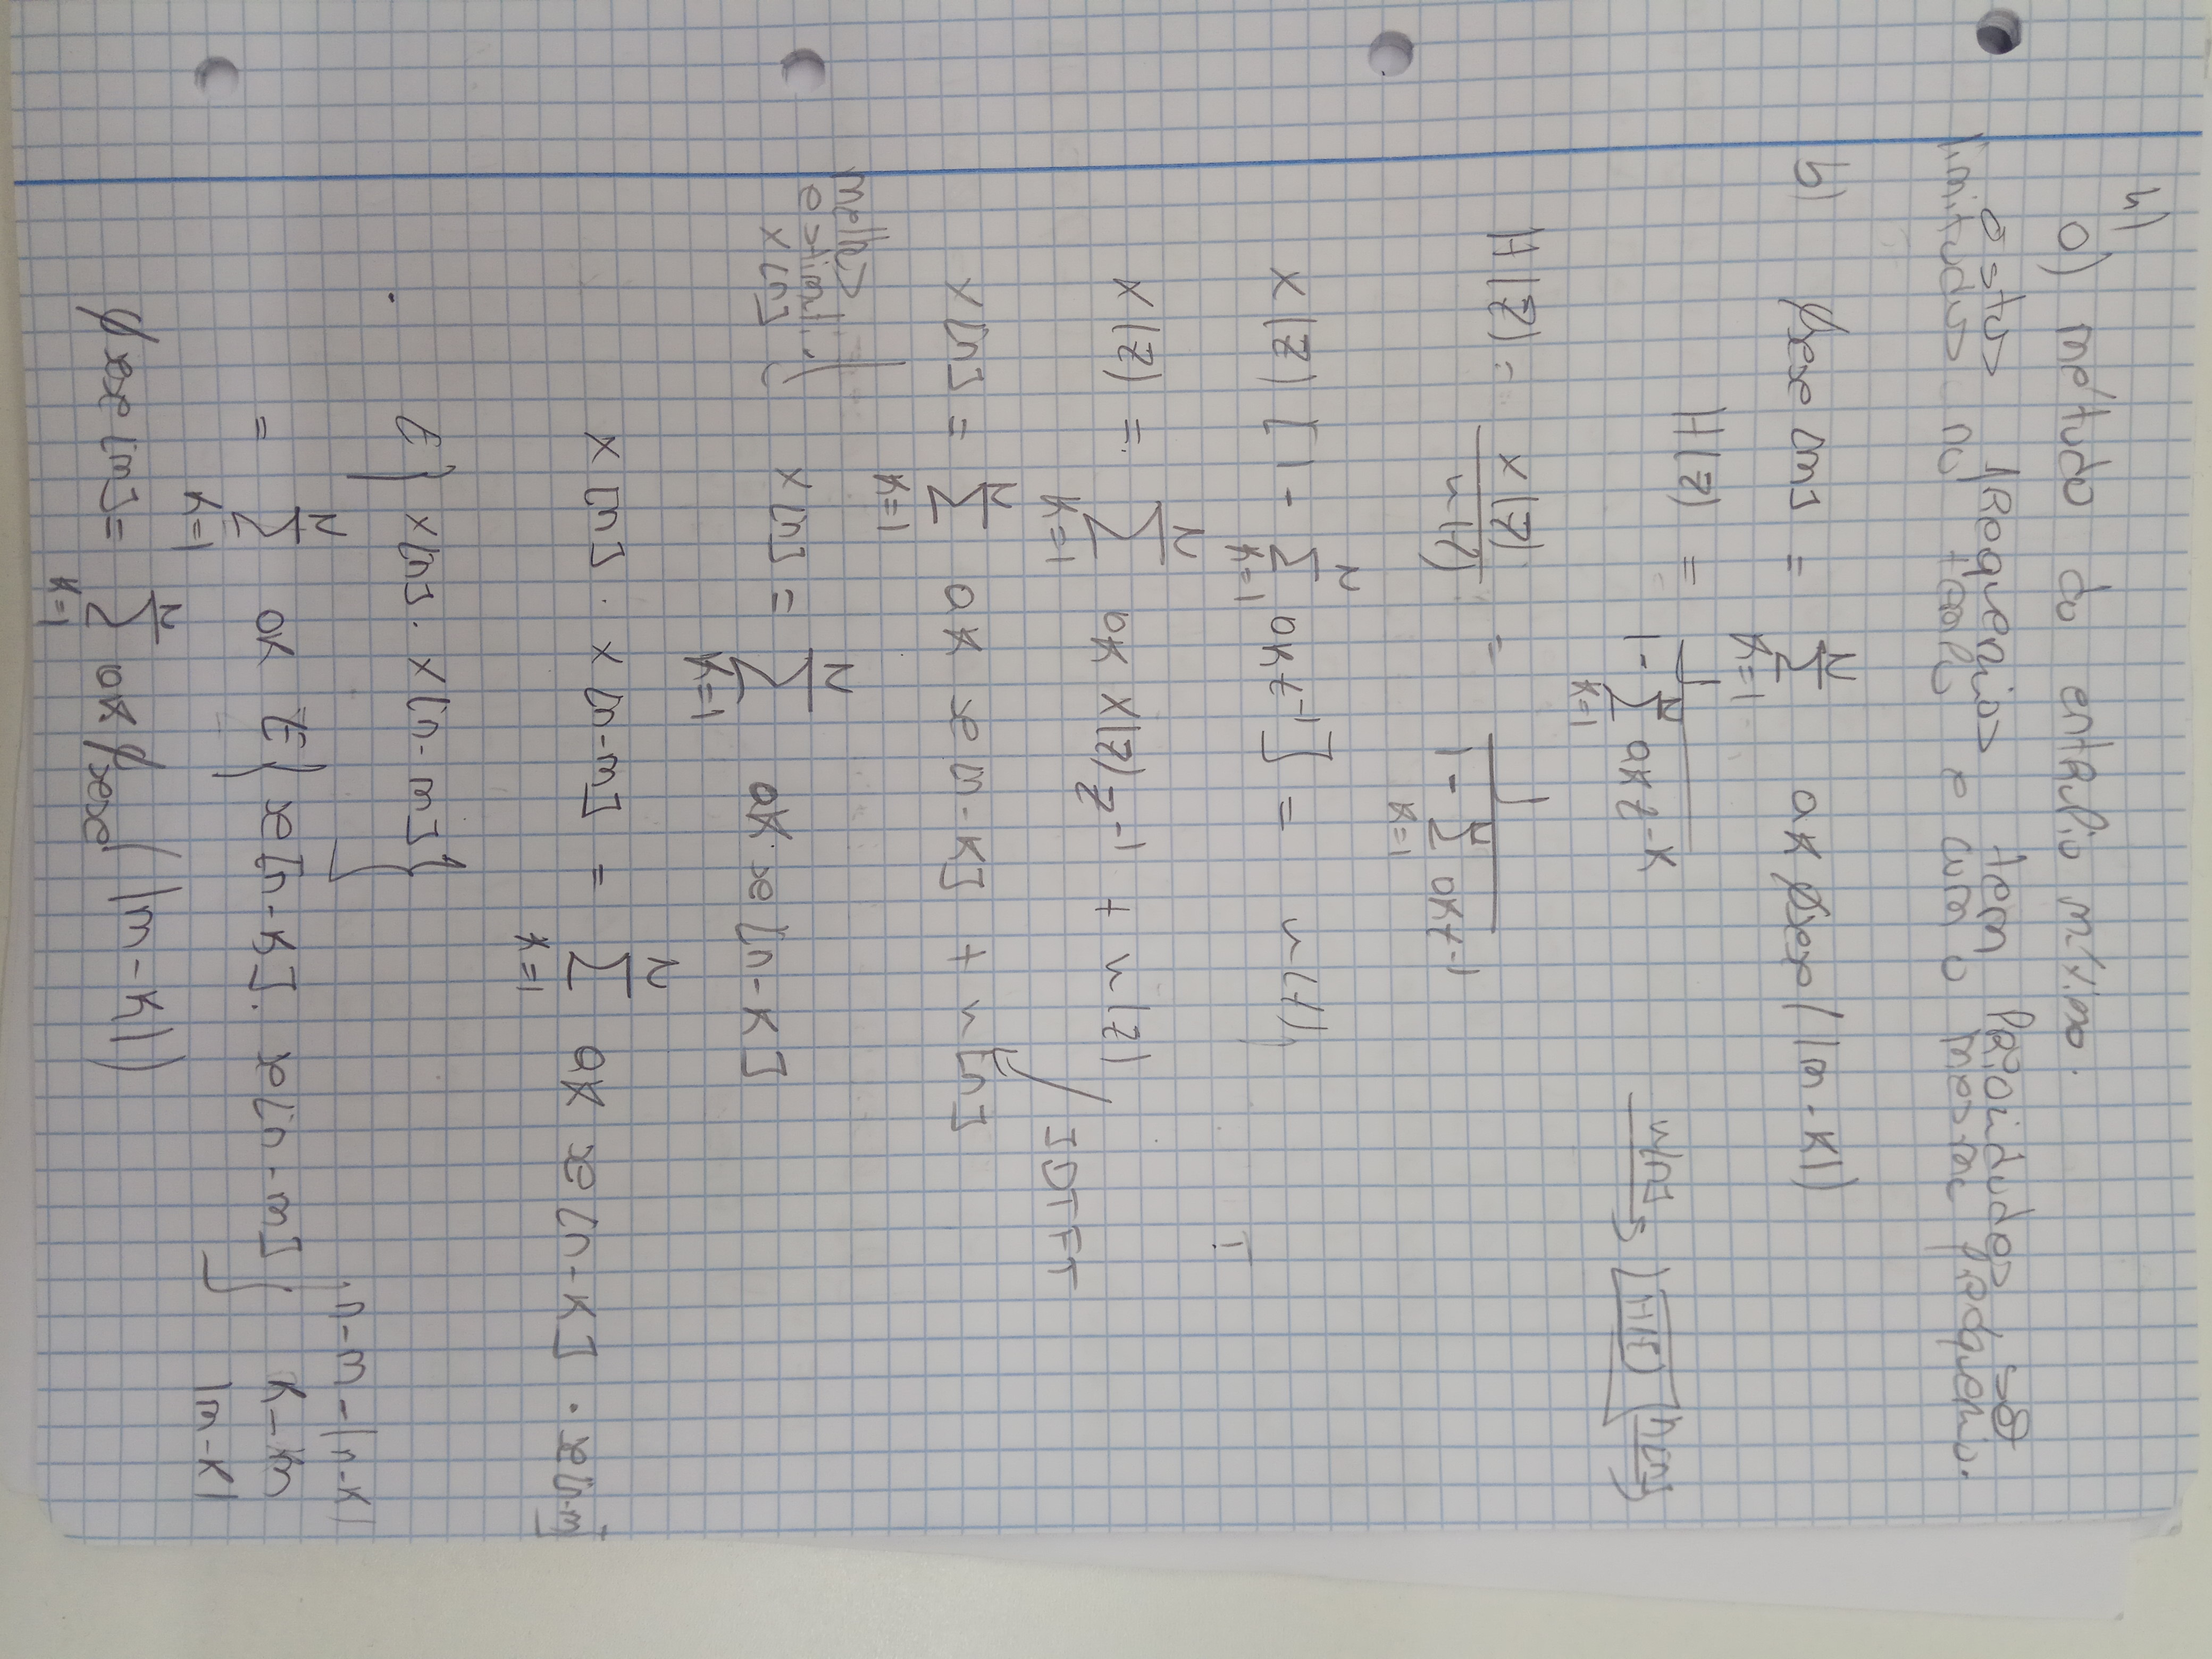 4)
a) método da entropia máxima.
estas frequencias tem prioridades, são
limitadas no tempo e com a mesma frequencia.
b) φxx[m] = Σ_{k=1}^{2} ak φxx(|m-k|)
H(z) = 1 / (1 - Σ_{k=1}^{2} ak z^-k)
u[n] → [H(z)] → 
H(z) = X(z) / u(z) = 1 / (1 - Σ_{k=1}^{2} ak z^-1)
X(z) [1 - Σ_{k=1}^{2} ak z^-1] = u(z)
X(z) = Σ_{k=1}^{2} ak X(z) z^-1 + u(z)
IDTFT
x[n] = Σ_{k=1}^{2} ak x[n-k] + u[n]
melhor
estimat.
x[n]
x[n] = Σ_{k=1}^{2} ak · x[n-k]
x[n] · x[n-m] = Σ_{k=1}^{2} ak x[n-k] · x[n-m]
E{x[n] · x[n-m]}
= Σ_{k=1}^{2} ak E{x[n-k] · x[n-m]}
n-m-(n-k)
k-m
|m-k|
φxx[m] = Σ_{k=1}^{2} ak φxx(|m-k|)